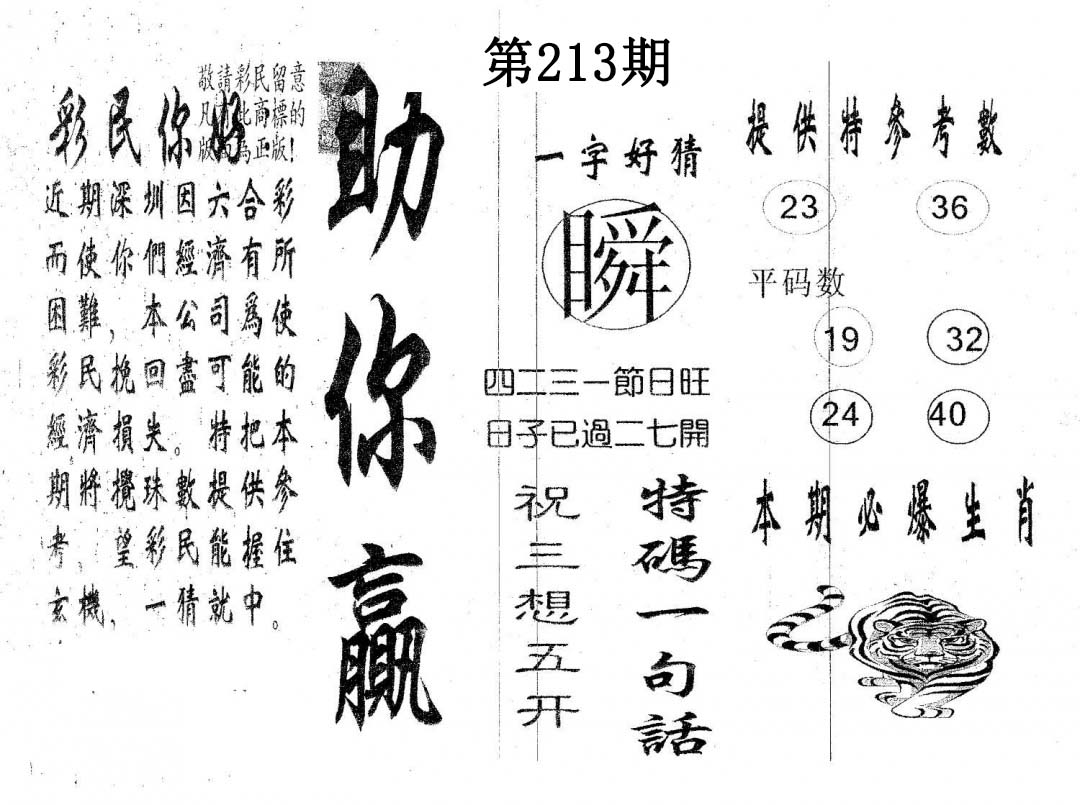 第213期
敬請彩民留意
凡 此商標的
版 為正版！
彩民你好
近期深圳因六合彩
而使你們經濟有所
困難，本公司為使
彩民挽回盡可能的
經濟損失。特把本
期將攪珠數提供參
考，望彩民能握住
玄機，一猜就中。
助你贏
一字好猜
瞬
四二三一節日旺
日子已過二七開
祝三想五开
特碼一句話
提供特參考數
23 36
平码数
19 32
24 40
本期必爆生肖